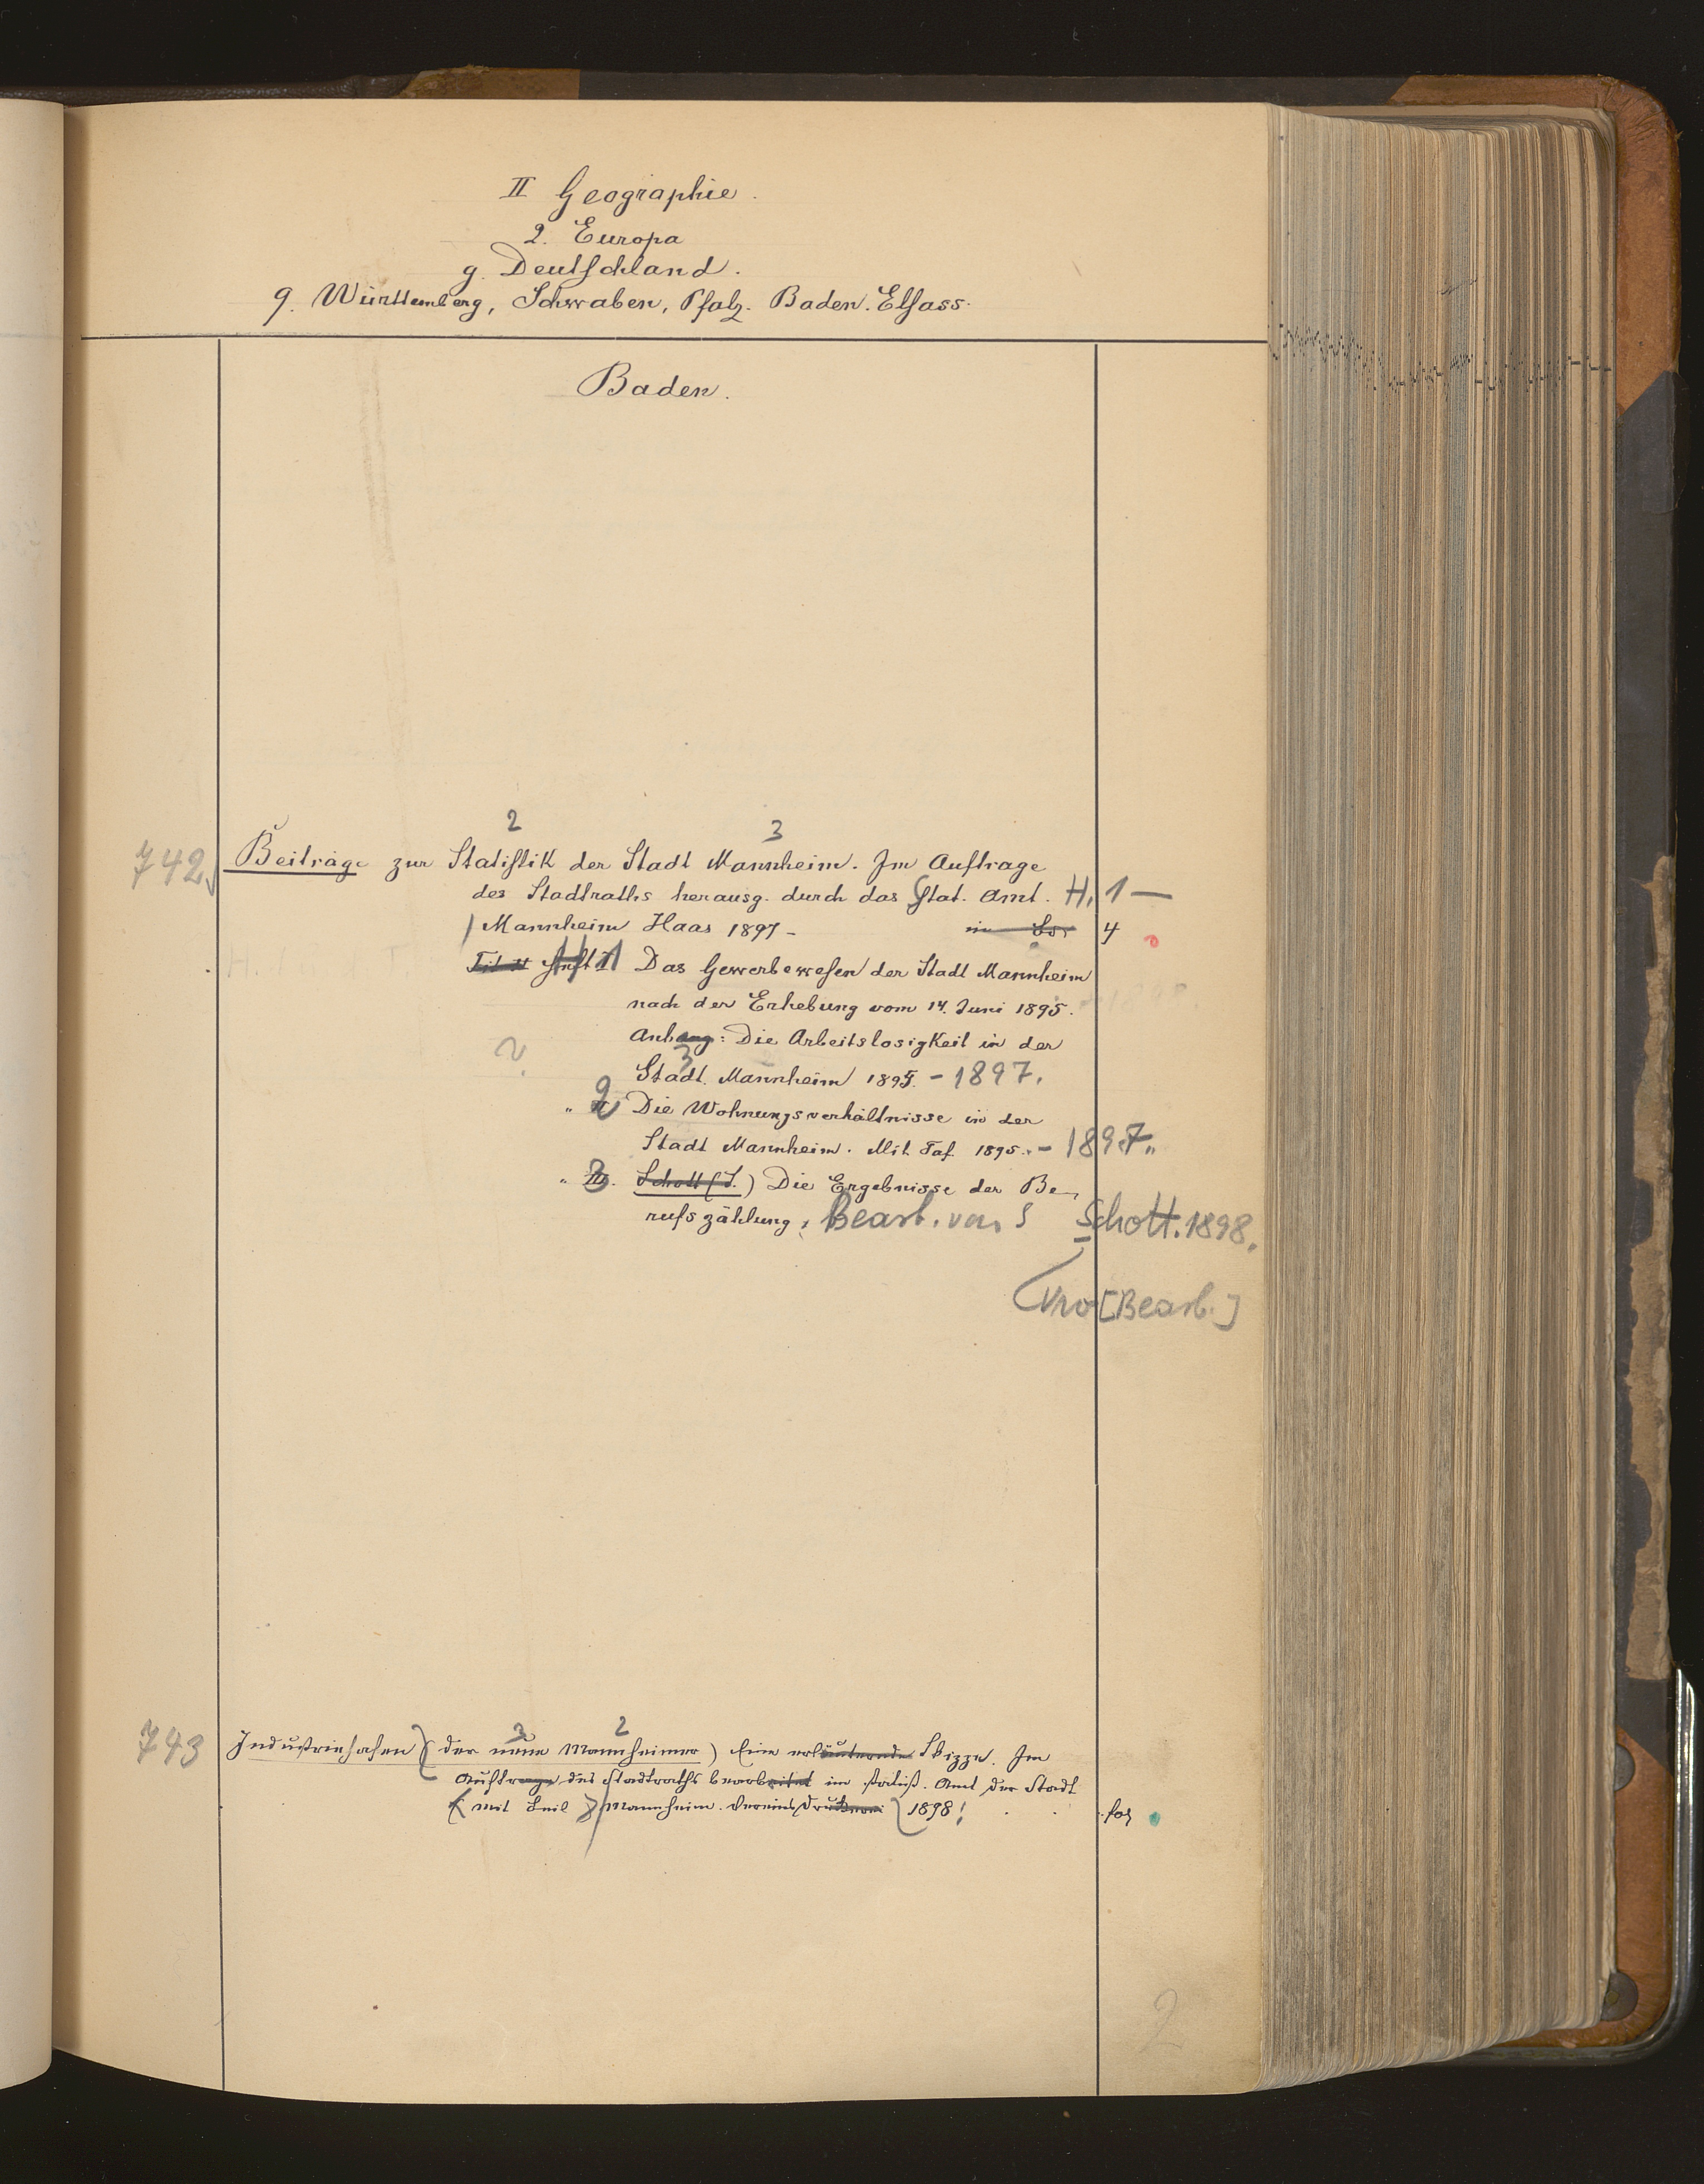 II Geographie.
2. Europa
g. Deutschland.
9. Württemberg, Schwaben, Pfalz. Baden. Elsass.
Baden.
2 3
742 Beiträge zur Statistik der Stadt Mannheim. Im Auftrage
des Stadtraths herausg. durch das Stat. Amt. H. 1 —
Mannheim Haas 1897 - 4
H 1 Das Gewerbewesen der Stadt Mannheim
nach der Erhebung vom 14. Juni 1895.
Anhang: Die Arbeitslosigkeit in der
Stadt Mannheim 1895. - 1897.
" 2 Die Wohnungsverhältnisse in der
Stadt Mannheim. Mit Taf. 1895. - 1897.
" 3. Schott (S.) Die Ergebnisse der Be-
rufszählung, Bearb. von S Schott. 1898.
[Bearb.]
3 2
743 Industriehafen (der neue Mannheimer) Eine erläuternde Skizze. Im
Auftrage des Stadtraths bearbeitet im statist. Amt der Stadt
(mit Beil) Mannheim. Vereinsdruckerei 1898! fol
2